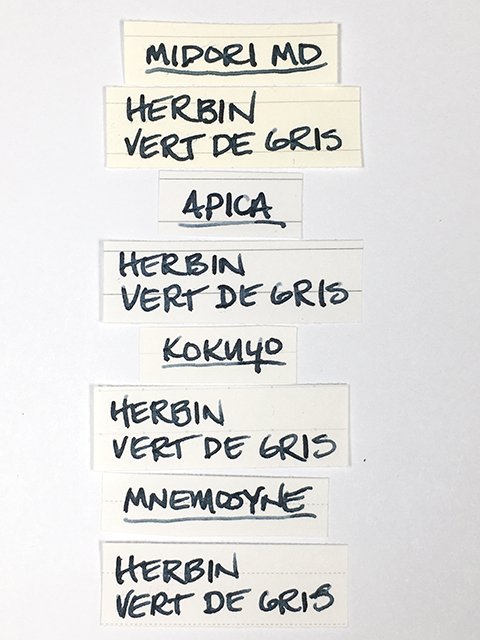 MIDORI MD
HERBIN
VERT DE GRIS
APICA
HERBIN
VERT DE GRIS
KOKUYO
HERBIN
VERT DE GRIS
MNEMOSYNE
HERBIN
VERT DE GRIS